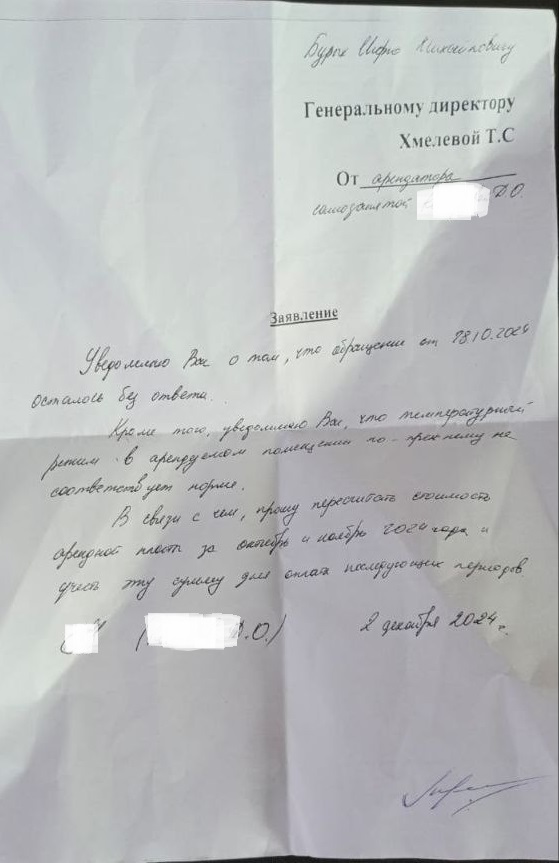 Генеральному директору
Хмелевой Т.С
От арендатора
самозанятой Д.О.
Заявление
Уведомляю Вас о том, что обращение от 28.10.2024
осталось без ответа.
Кроме того, уведомляю Вас, что температурный
режим в арендуемом помещении по-прежнему не
соответствует норме.
В связи с чем, прошу пересчитать стоимость
арендной платы за октябрь и ноябрь 2024 года и
учесть эту сумму для оплаты последующих периодов
( Д.О.) 2 декабря 2024 г.